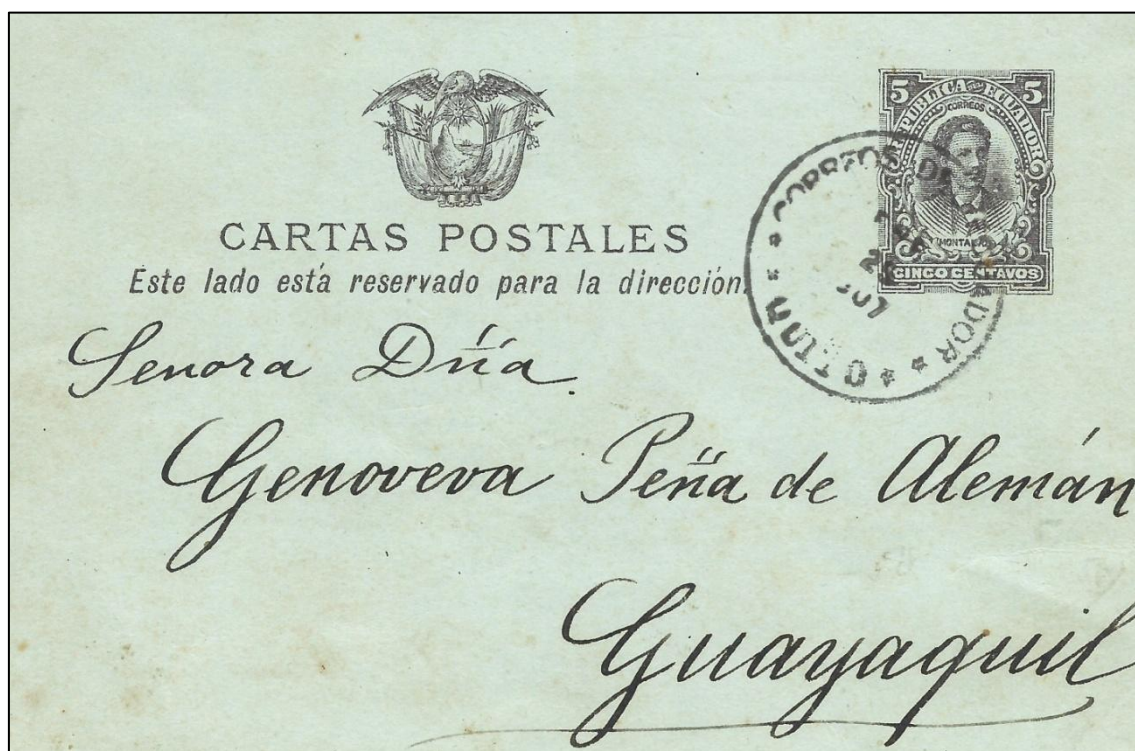 CARTAS POSTALES
Este lado está reservado para la dirección.
5 5
REPUBLICA DEL ECUADOR
CORREOS
MONTALVO
CINCO CENTAVOS
CORREOS DEL ECUADOR
QUITO
Senora Dña
Genoveva Peña de Alemán
Guayaquil